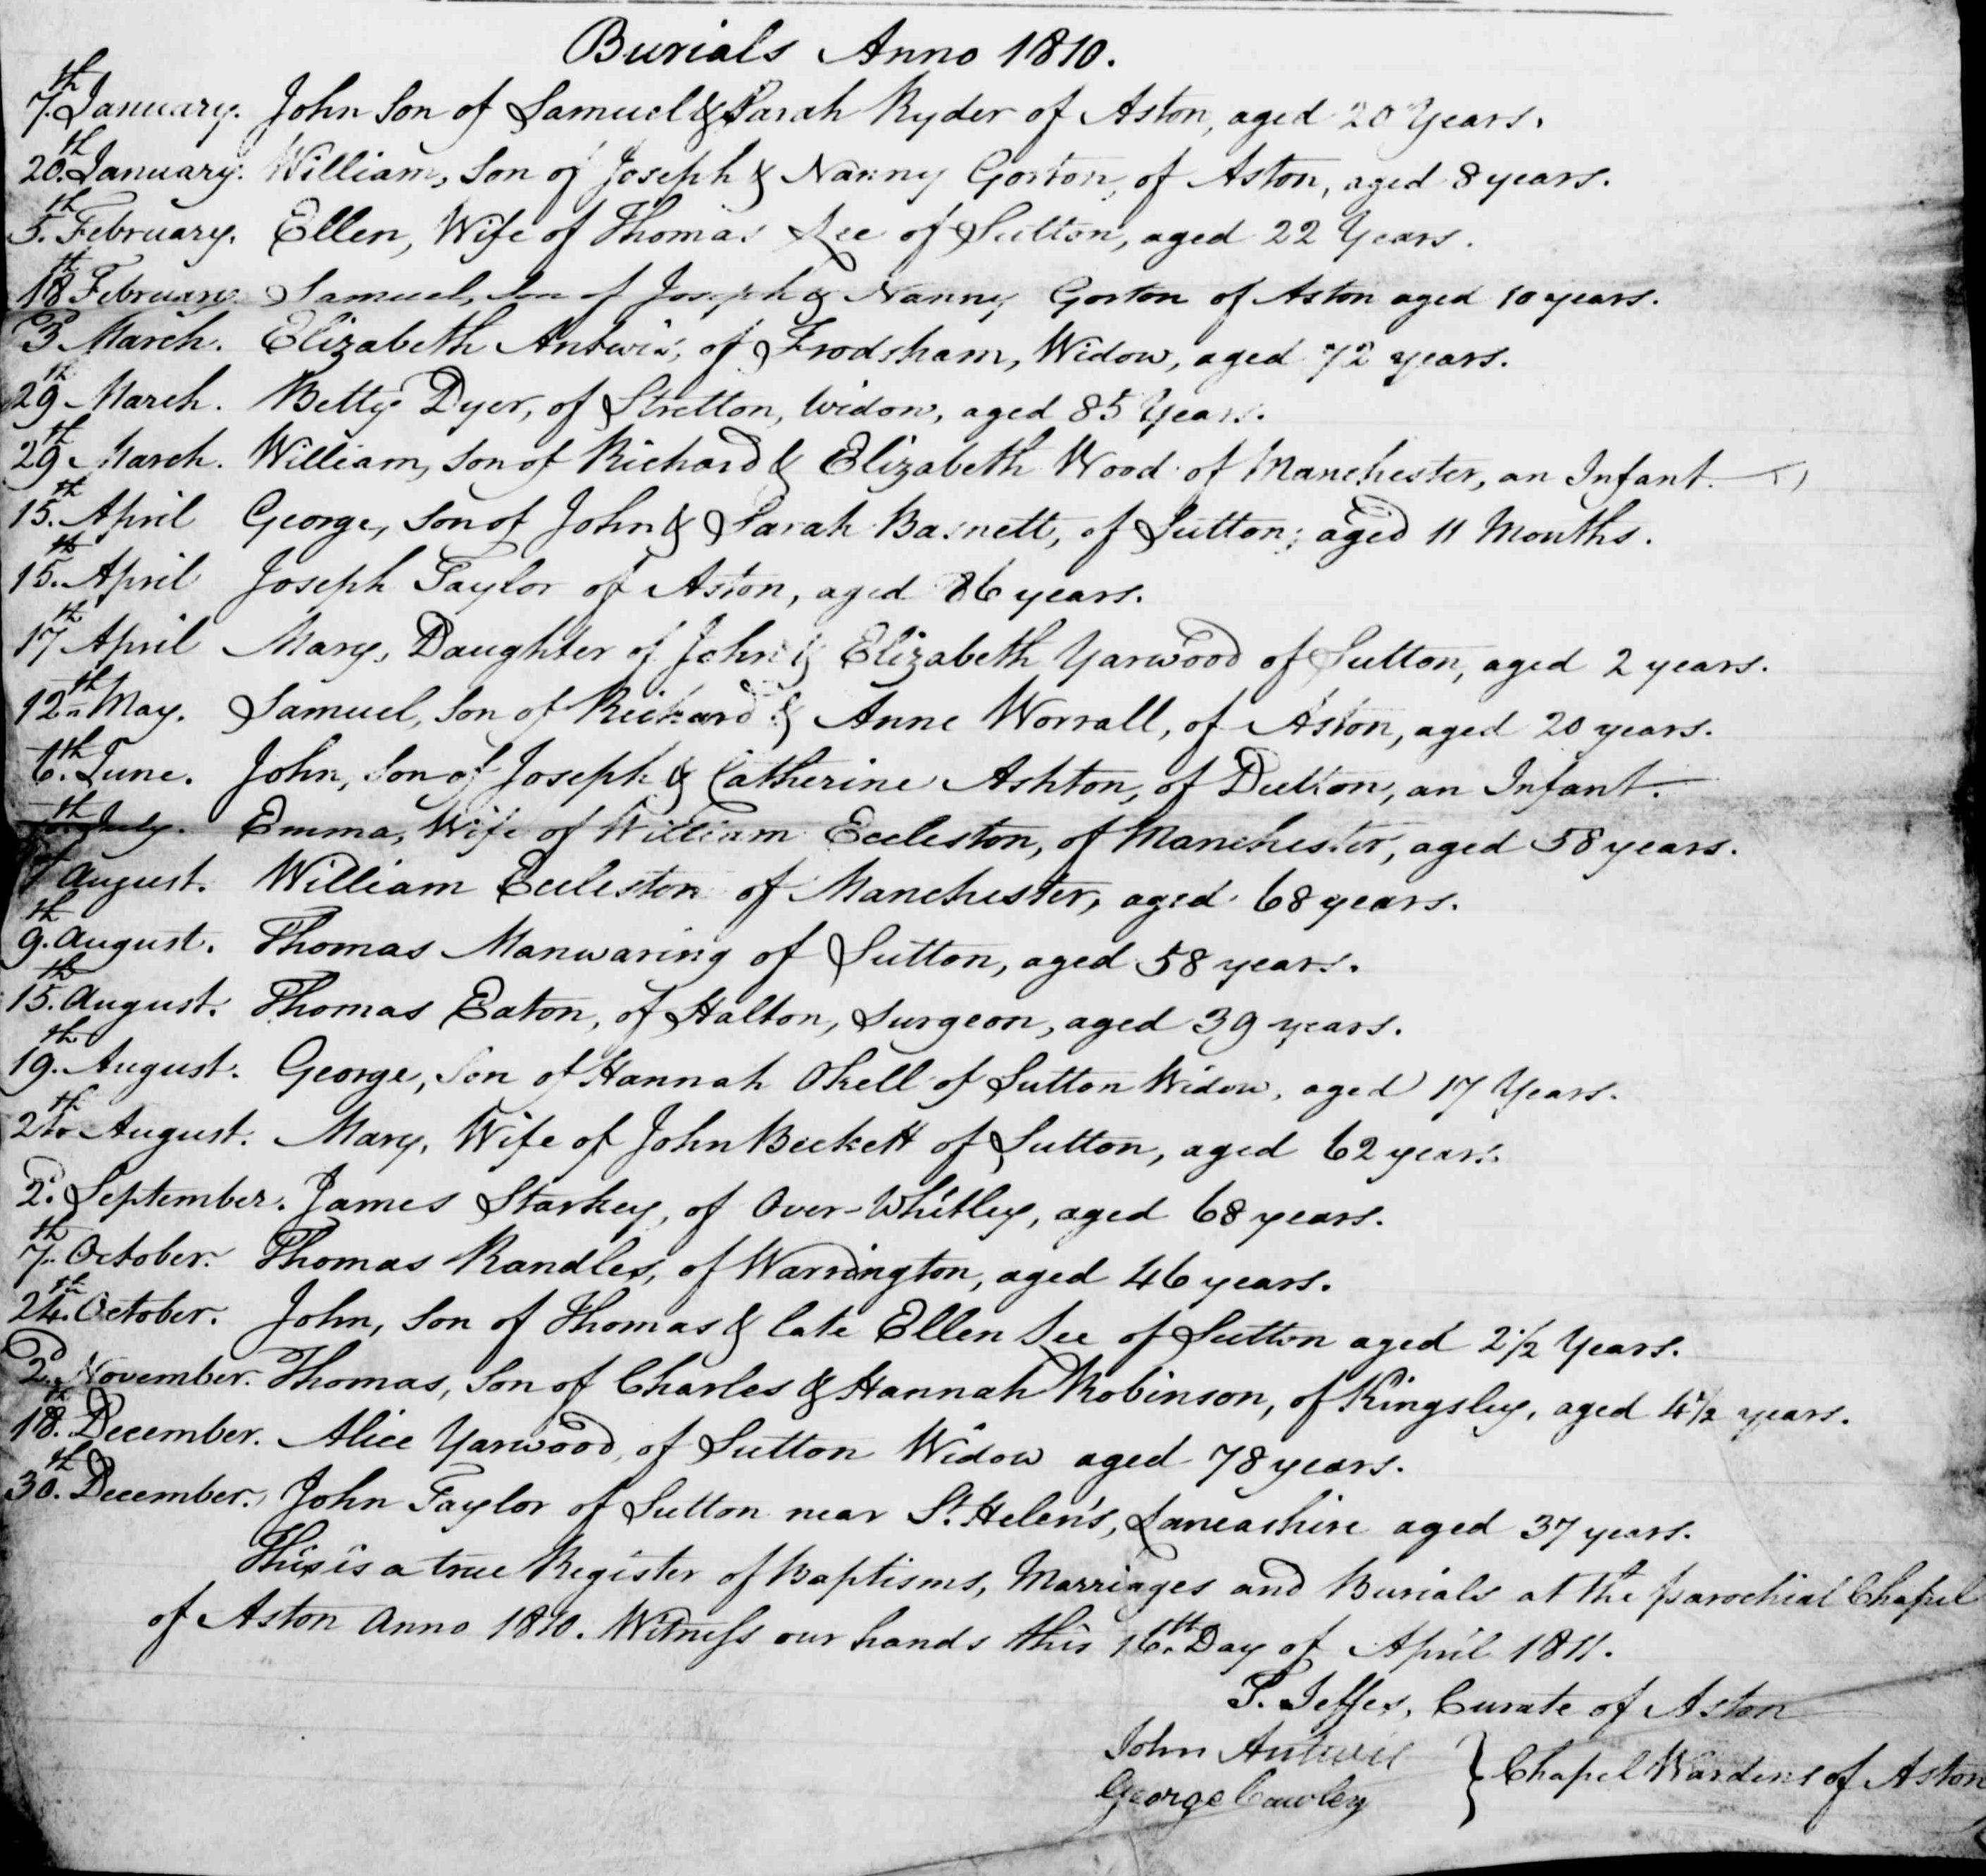 Burials Anno 1810.
7.th January. John Son of Samuel & Sarah Ryder of Aston, aged 20 Years.
20.th January. William, Son of Joseph & Nanny Gorton, of Aston, aged 8 years.
5.th February. Ellen, Wife of Thomas Lee of Sutton, aged 22 Years.
18th February. Samuel, Son of Joseph & Nanny Gorton of Aston aged 10 years.
3d March. Elizabeth Antwis, of Frodsham, Widow, aged 72 years.
29th March. Betty Dyer, of Stretton, Widow, aged 85 Years.
29th March. William, Son of Richard & Elizabeth Wood of Manchester, an Infant.
15.th April George, Son of John & Sarah Basnett, of Sutton; aged 11 Months.
15.th April Joseph Taylor of Aston, aged 86 years.
17th April Mary, Daughter of John & Elizabeth Yarwood of Sutton, aged 2 years.
12th May. Samuel, Son of Richard & Anne Worrall, of Aston, aged 20 years.
6.th June. John, Son of Joseph & Catherine Ashton, of Dutton, an Infant.
th July. Emma, Wife of William Eccleston, of Manchester, aged 58 years.
August. William Eccleston of Manchester, aged 68 years.
9.th August. Thomas Manwaring of Sutton, aged 58 years.
15.th August. Thomas Eaton, of Halton, Surgeon, aged 39 years.
19.th August. George, Son of Hannah Okell of Sutton Widow, aged 17 Years.
26th August. Mary, Wife of John Beckett of Sutton, aged 62 years.
2.d September. James Starkey, of Over-Whitley, aged 68 years.
7.th October. Thomas Randles, of Warrington, aged 46 years.
24.th October. John, Son of Thomas & late Ellen Lee of Sutton aged 2 1/2 Years.
2.d November. Thomas, Son of Charles & Hannah Robinson, of Kingsley, aged 4 1/2 years.
18.th December. Alice Yarwood, of Sutton Widow aged 78 years.
30.th December. John Taylor of Sutton near St. Helen's, Lancashire aged 37 years.
This is a true Register of Baptisms, Marriages and Burials at the parochial Chapel
of Aston Anno 1810. Witness our hands this 16.th Day of April 1811.
Curate of Aston
John Antwis
George Cawley } Chapel Wardens of Aston